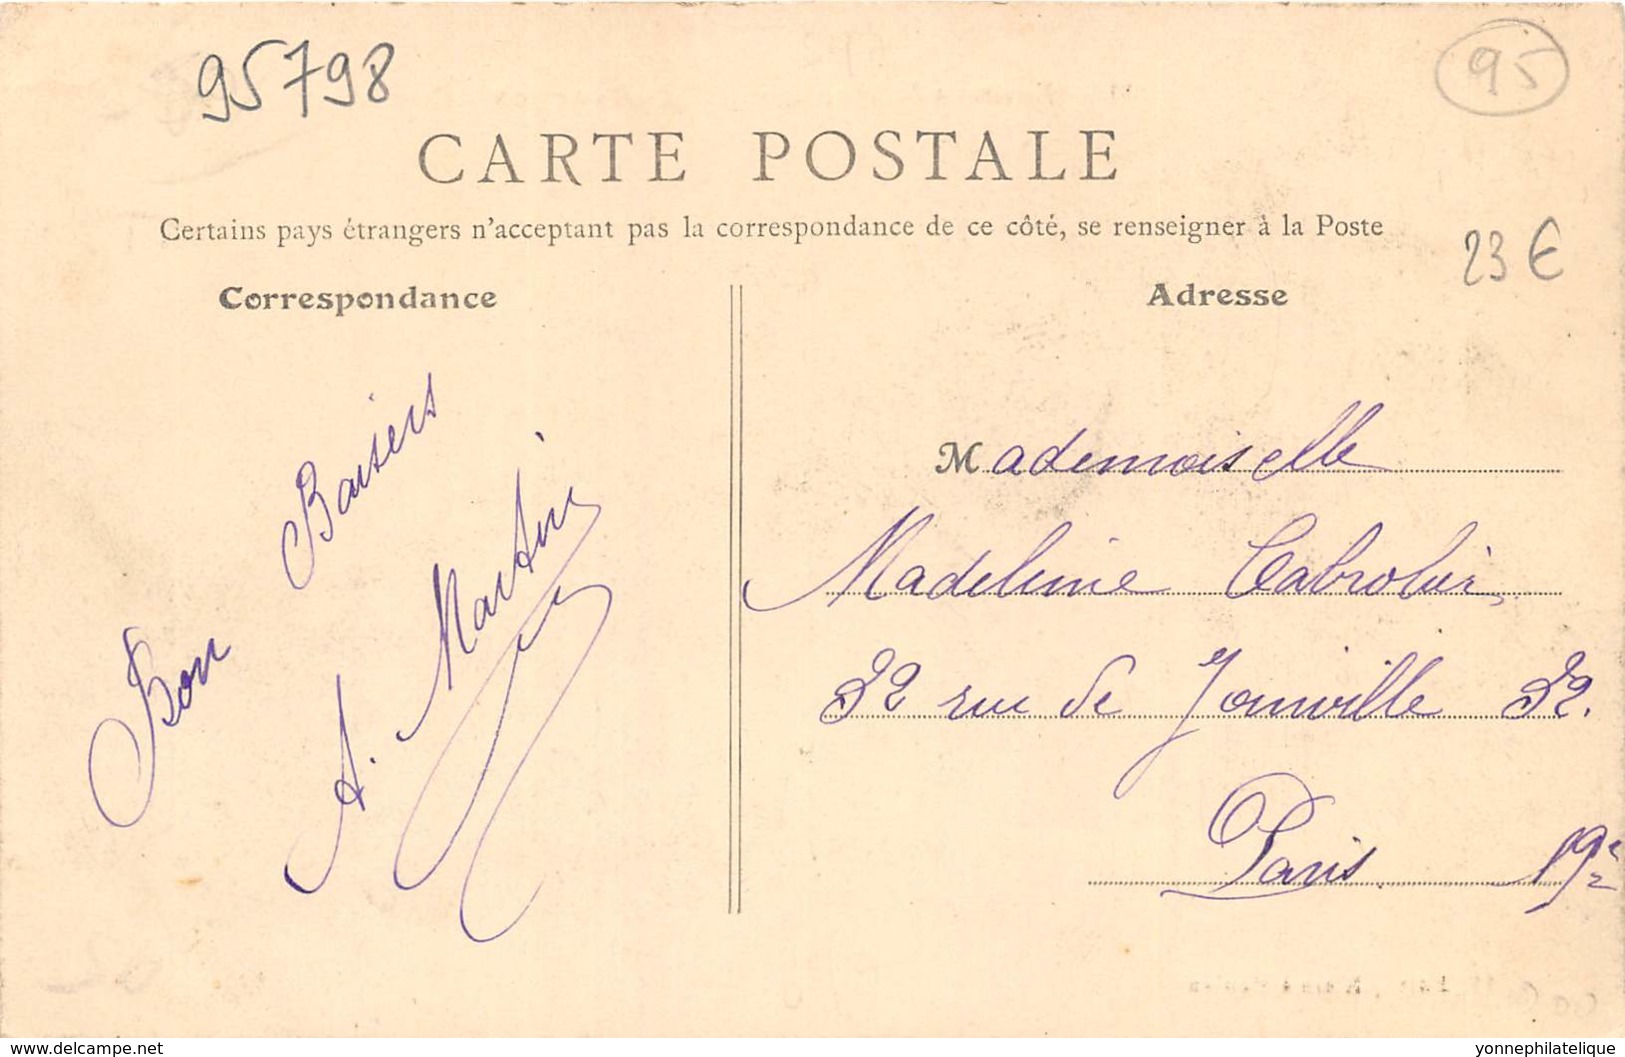 95798
95
CARTE POSTALE
Certains pays étrangers n'acceptant pas la correspondance de ce côté, se renseigner à la Poste
23 €
Correspondance
Bon Baisers
A. Martin
Adresse
Mademoiselle
Madeleine
32 rue de Joinville 32.
Paris 19e
www.delcampe.net
yonnephilatelique